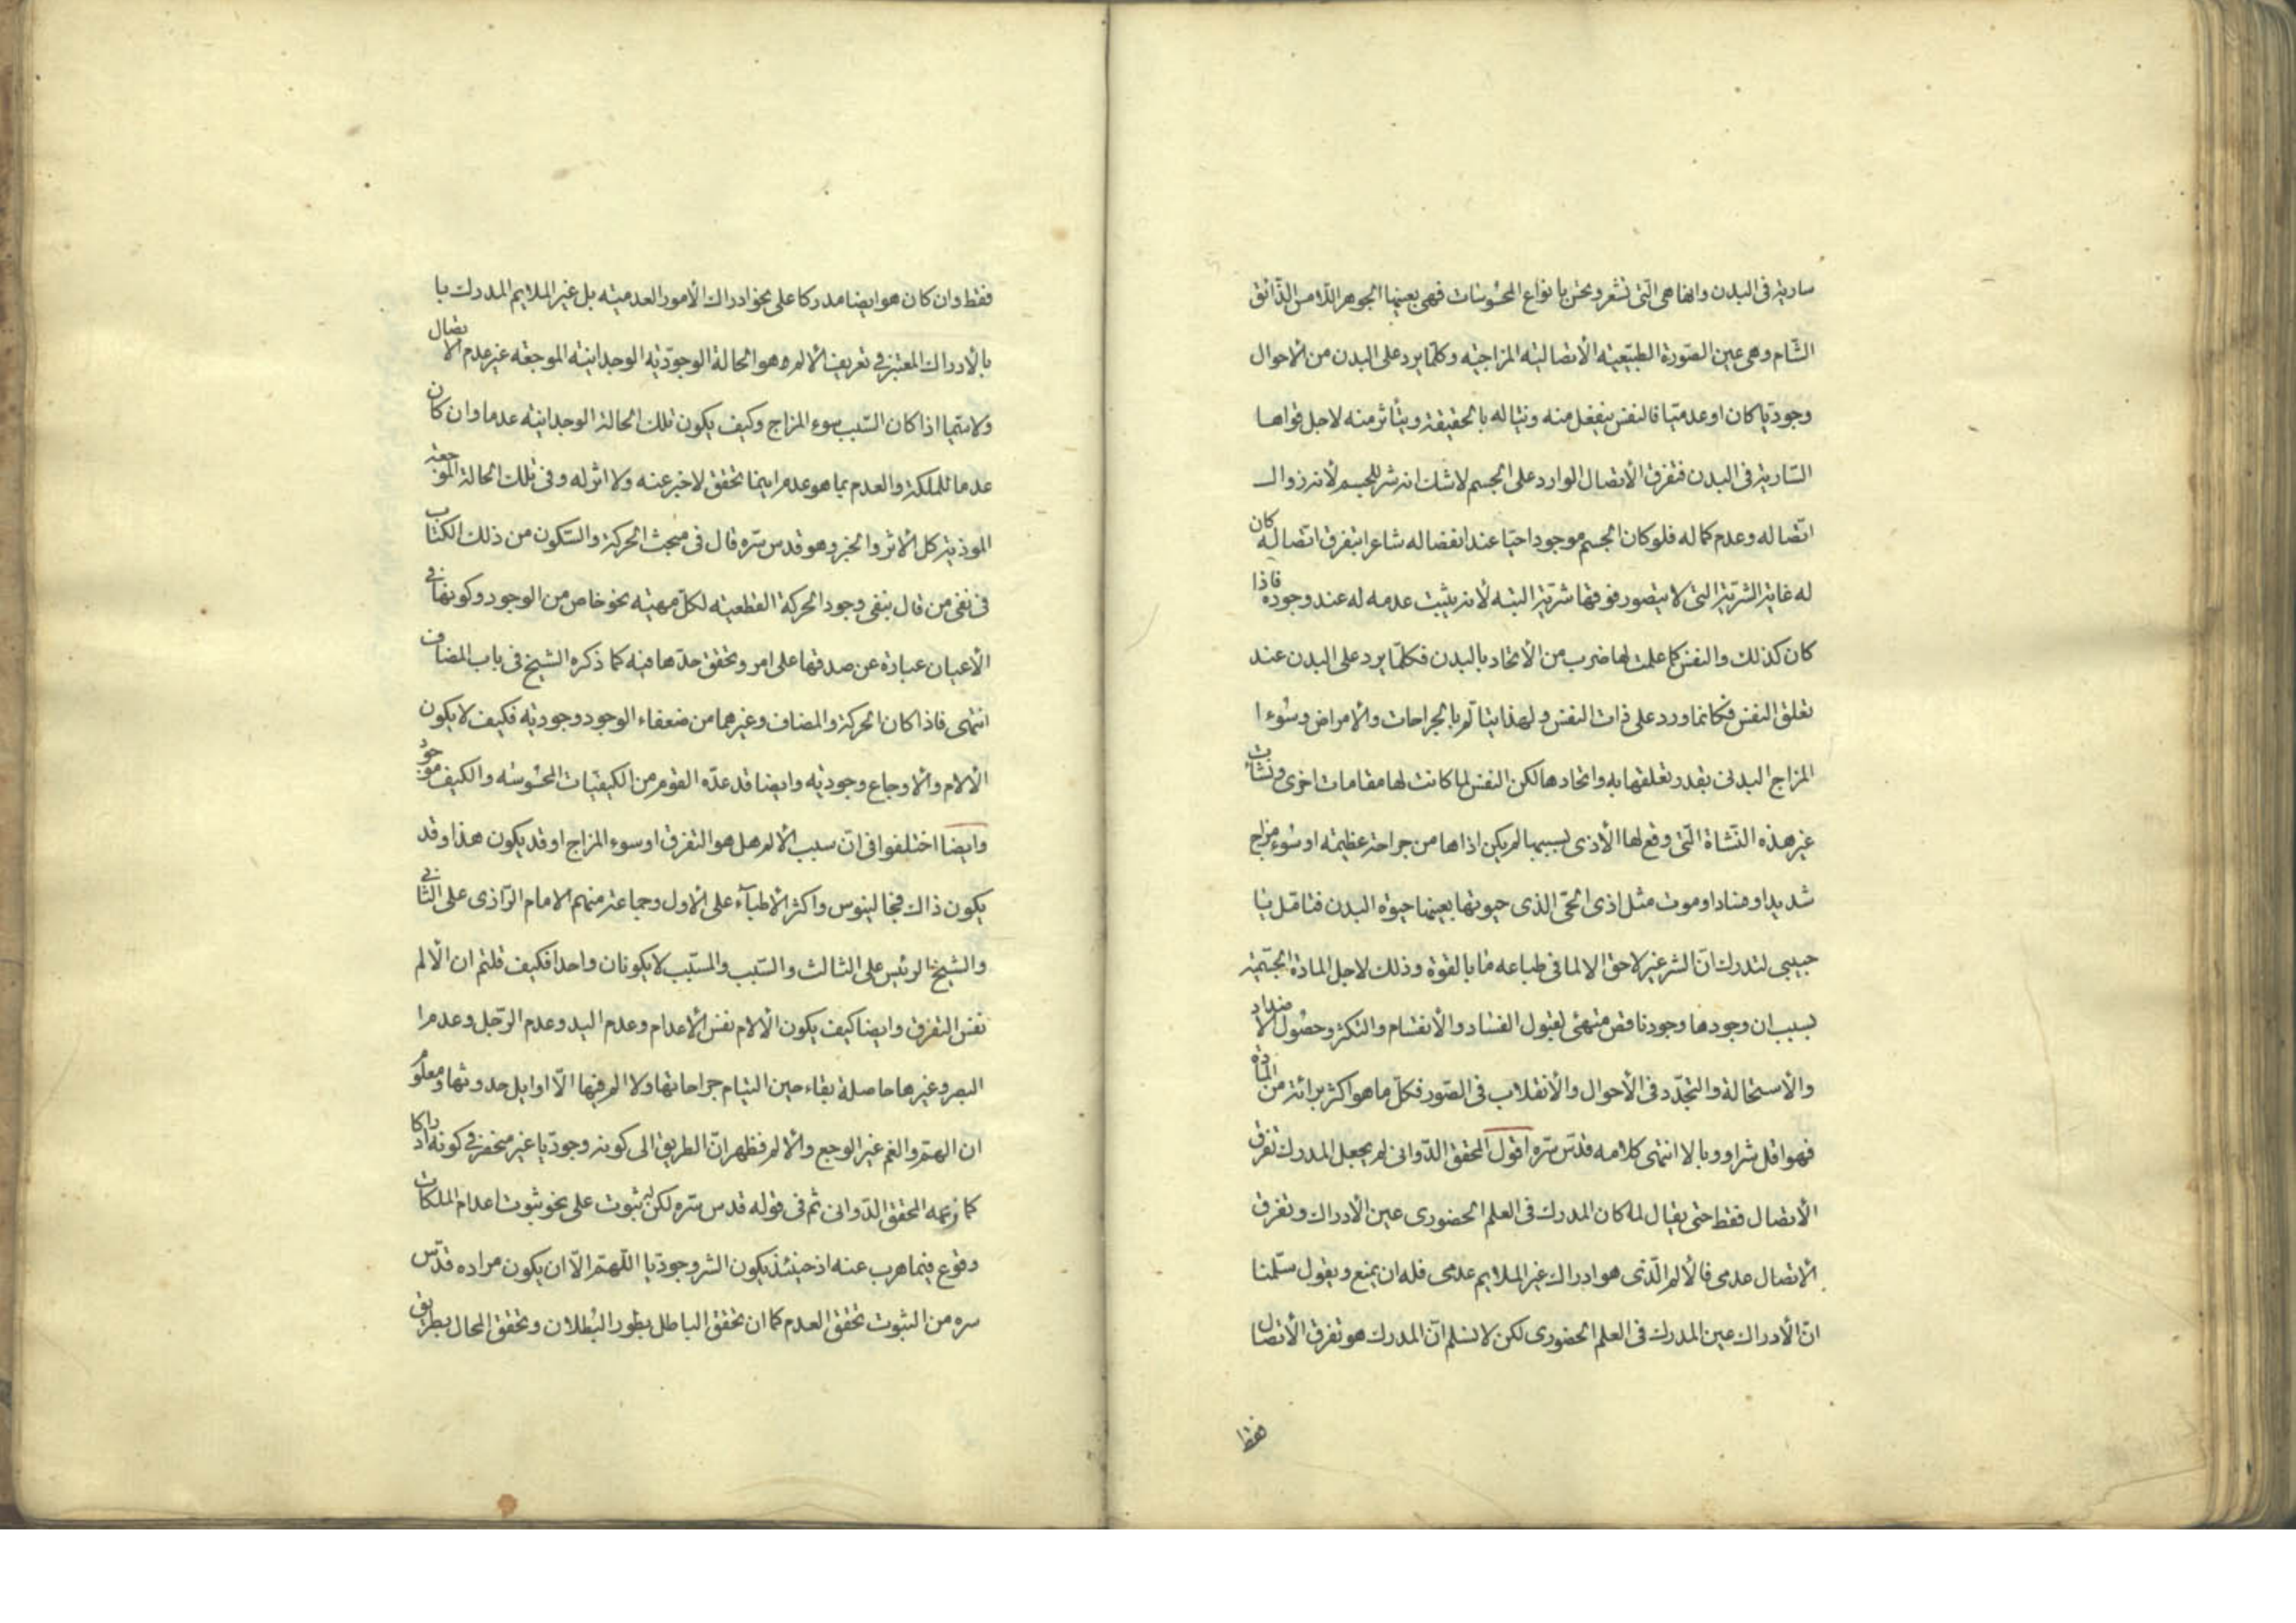 سارية فى البدن وانها هى التى تشعر وتحس بانواع المحسوسات فهى بعينها الجوهر اللامس الذائق
الشام وهى عين الصورة الطبيعية الأتصالية المزاجية وكلما يرد على البدن من الاحوال
وجوديا كان او عدميا فالنفس ينفعل منه ويناله بالحقيقة ويتأثر منه لاجل قواها
السارية فى البدن فتفرق الأتصال الوارد على الجسم لاشك انه شر للجسم لأنه زوال
اتصاله وعدم كماله فلو كان الجسم موجودا حيا عند انفصاله شاعرا بتفرق اتصاله كان
له غاية الشرية التى لا يتصور فوقها شرية البته لأنه يثبت عدمه له عند وجوده فاذا
كان كذلك والنفس كما علمت لها ضرب من الأتحاد بالبدن فكلما يرد على البدن عند
تعلق النفس فكانما ورد على ذات النفس ولهذا يتألم بالجراحات والأمراض وسوء ا
المزاج البدنى بقدر تعلقها به واتحادها لكن النفس لما كانت لها مقامات اخرى ونشات
غير هذه النشاة التى وقع لها الأذى بسببها لم يكن اذاها من جراحة عظيمة او سوء مزاج
شديد او فساد او موت مثل اذى الحى الذى حيوتها بعينها حيوة البدن فتامل يا
حبيبى لتدرك ان الشر غير لاحق الا لما فى طباعه ما بالقوة وذلك لاجل المادة الجسمية
بسبب ان وجودها وجود ناقص متهئ لقبول الفساد والأنقسام والتكثر وحصول الاضداد
والأستحالة والتجدد فى الأحوال والأنقلاب فى الصور فكل ما هو اكثر برائة من المادة
فهو اقل شرا ووبالا انتهى كلامه قدس سره اقول المحقق الدوانى لم يجعل المدرك تفرق
الأتصال فقط حتى يقال لما كان المدرك فى العلم الحضورى عين الأدراك وتفرق
الأتصال عدمى فالألم الذى هو ادراك غير الملايم عدمى فله ان يمنع ويقول سلمنا
ان الأدراك عين المدرك فى العلم الحضورى لكن لا نسلم ان المدرك هو تفرق الأتصال
فقط
فقط وان كان هو ايضا مدركا على نحو ادراك الأمور العدمية بل غير الملايم المدرك با
بالأدراك المعتبر فى تعريف الألم هو الحالة الوجودية الوجدانية الموجعة غير عدم الاتصال
ولا سيما اذا كان السبب سوء المزاج وكيف يكون تلك الحالة الوجدانية عدما وان كان
عدما للملكة والعدم بما هو عدم اينما تحقق لا خبر عنه ولا اثر له وفى تلك الحالة الموجعة
الموذية كل الأثر والخبر وهو قدس سره قال فى مبحث الحركة والسكون من ذلك الكتاب
فى نفى من قال بنفى وجود الحركة القطعية لكل مهية نحو خاص من الوجود وكونها فى
الأعيان عبارة عن صدقها على امر وتحقق حدها فيه كما ذكره الشيخ فى باب المضاف
انتهى فاذا كان الحركة والمضاف وغيرهما من ضعفاء الوجود وجودية فكيف لا يكون
الألام والأوجاع وجودية وايضا قد عده القوم من الكيفيات المحسوسة والكيف موجود
وايضا اختلفوا فى ان سبب الألم هل هو التفرق او سوء المزاج او قد يكون هذا وقد
يكون ذاك فجالينوس واكثر الأطباء على الاول وجماعة منهم الامام الرازى على الثانى
والشيخ الرئيس على الثالث والسبب والمسبب لا يكونان واحدا فكيف قلتم ان الألم
نفس التفرق وايضا كيف يكون الألام نفس الأعدام وعدم اليد وعدم الرجل وعدم ا
البصر وغيرها حاصلة بقاء حين التيام جراحاتها ولا الم فيها الا اوايل حدوثها ومعلوم
ان الهم والغم غير الوجع والألم فظهر ان الطريق الى كونه وجوديا غير منحصر فى كونه ادراكا
كما زعمه المحقق الدوانى ثم فى قوله قدس سره لكن له ثبوت على نحو ثبوت اعدام الملكات
وقوع فيما هرب عنه اذ حينئذ يكون الشر وجوديا اللهم الا ان يكون مراده قدس
سره من الثبوت تحقق العدم كما ان تحقق الباطل بطور البطلان وتحقق المحال بطريق